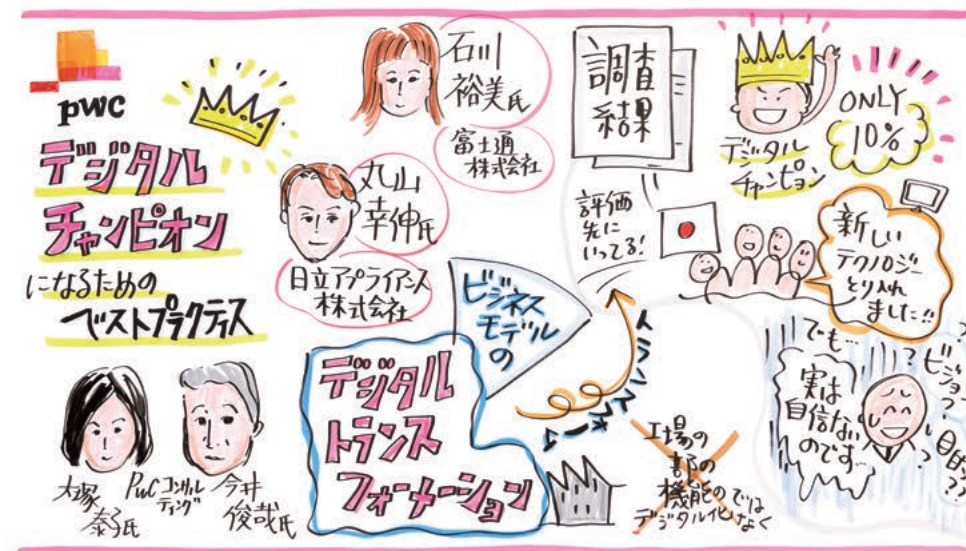 pwc
デジタル
チャンピオン
になるための
ベストプラクティス
大塚
泰子氏
PwCコンサル
ティング
今井
俊哉氏
石川
裕美氏
富士通
株式会社
丸山
幸伸氏
日立アプライアンス
株式会社
ビジネス
モデル
の
デジタル
トランス
フォーメーション
調査
結果
評価
先に
いってる!
デジタル
チャンピョン
ONLY
10%
新しい
テクノロジー
とり入れ
ました!!
でも…
実は
自信ない
のです…
ビジョン?
目的??
工場の
一部の
機能の
デジタル化
ではなく